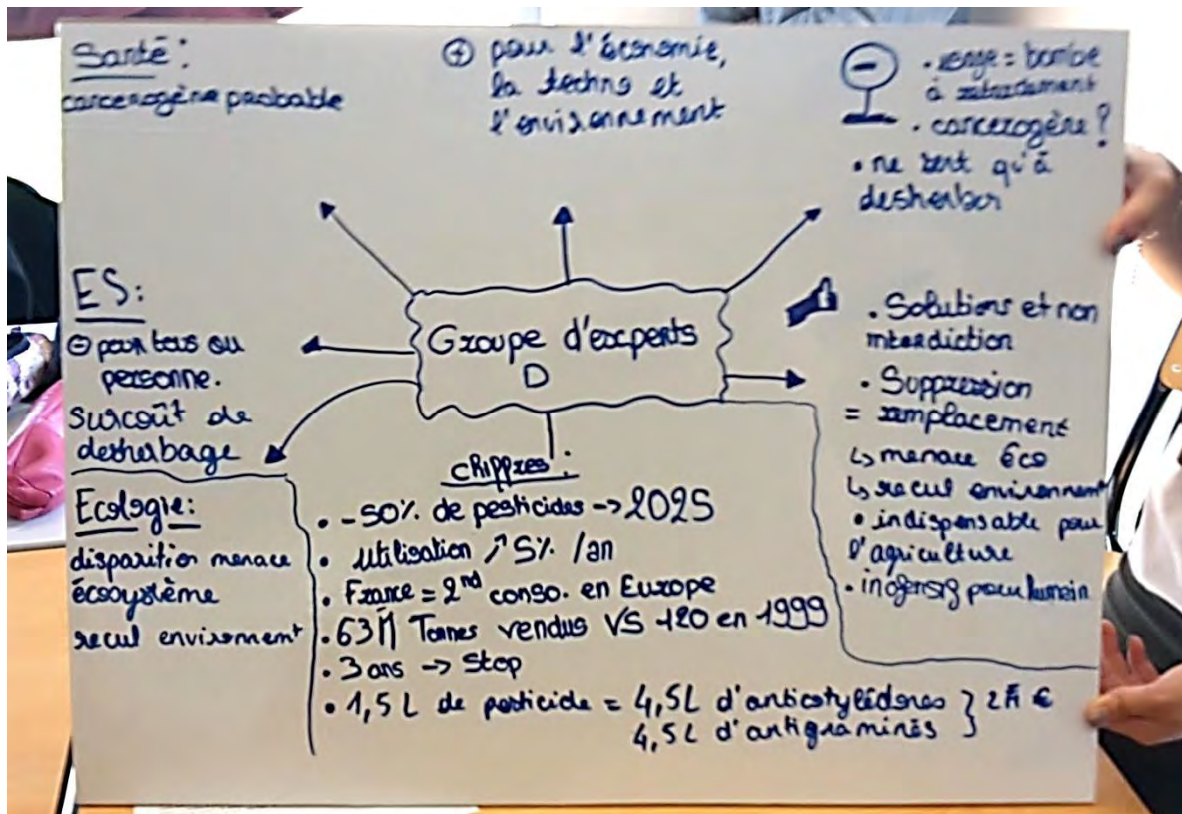 Santé :
carcerogène probable
⊕ pour l'économie,
la techno et
l'environnement
⊖
. = bombe
à retardement
. carcerogène ?
• ne sert qu'à
desherber
ES :
⊖ pour tous ou
personne.
Surcoût de
desherbage
Groupe d'experts
D
. Solutions et non
interdiction
. Suppression
= remplacement
↳ menace éco
↳ recul environnemt
• indispensable pour
l'agriculture
• inofensif pour humain
Ecologie :
disparition menace
écosystème
recul environment
chiffres :
. -50% de pesticides -> 2025
. utilisation ↗ 5% /an
. France = 2nd conso. en Europe
. 63M Tonnes vendus VS 120 en 1999
. 3 ans -> Stop
. 1,5 L de pesticide = 4,5L d'anticotylédones } 2M €
4,5L d'antigraminés